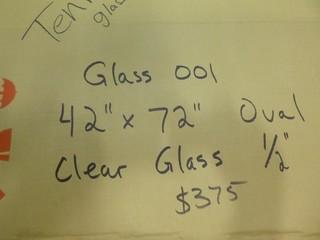 Glass 001
42" x 72" Oval
Clear Glass 1/2"
$375